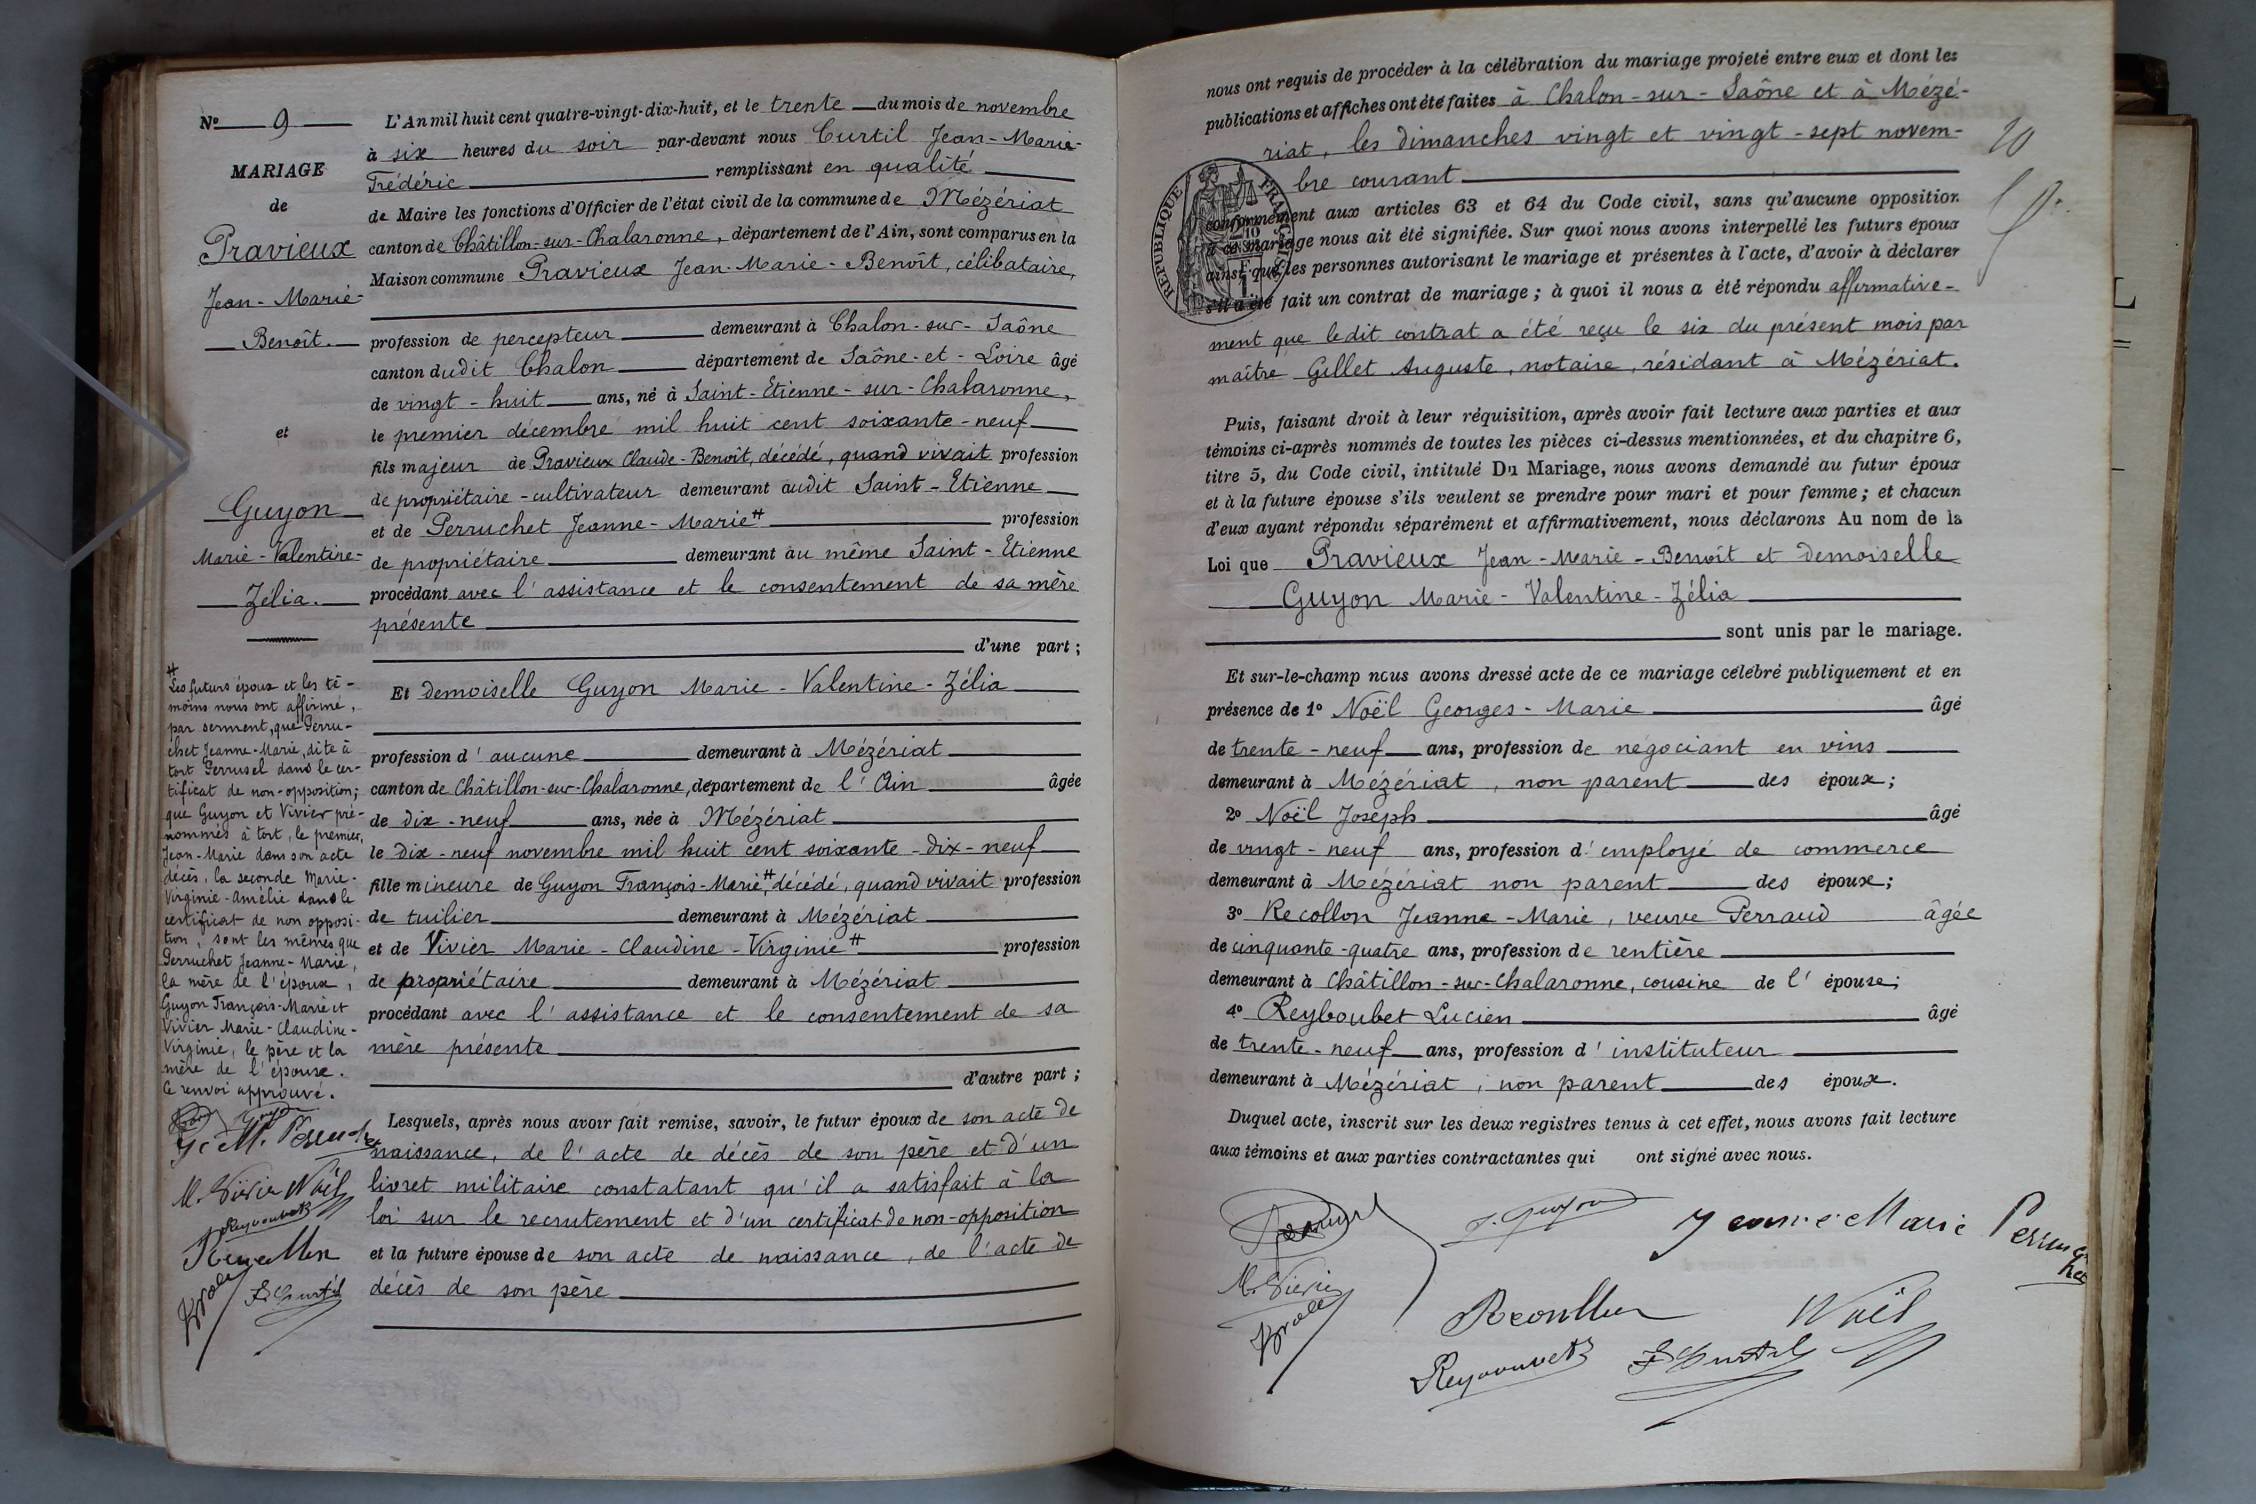 No 9
MARIAGE
de
Pravieux
Jean-Marie-
Benoît.
et
Guyon
Marie-Valentine-
Zélia.
L'An mil huit cent quatre-vingt-dix-huit, et le trente du mois de novembre
à six heures du soir par-devant nous Curtil Jean-Marie-
Frédéric remplissant en qualité
de Maire les fonctions d'Officier de l'état civil de la commune de Mézériat
canton de Châtillon-sur-Chalaronne, département de l'Ain, sont comparus en la
Maison commune Pravieux Jean-Marie-Benoît, célibataire,
profession de percepteur demeurant à Chalon-sur-Saône
canton dudit Chalon département de Saône-et-Loire âgé
de vingt-huit ans, né à Saint-Etienne-sur-Chalaronne,
le premier décembre mil huit cent soixante-neuf
fils majeur de Pravieux Claude-Benoît, décédé, quand vivait profession
de propriétaire-cultivateur demeurant audit Saint-Etienne
et de Perruchet Jeanne-Marie # profession
de propriétaire demeurant au même Saint-Etienne
procédant avec l'assistance et le consentement de sa mère
présente
d'une part;
Et demoiselle Guyon Marie-Valentine-Zélia
profession d'aucune demeurant à Mézériat
canton de Châtillon-sur-Chalaronne, département de l'Ain âgée
de dix-neuf ans, née à Mézériat
le dix-neuf novembre mil huit cent soixante-dix-neuf
fille mineure de Guyon François-Marie,# décédé, quand vivait profession
de tuilier demeurant à Mézériat
et de Vivier Marie-Claudine-Virginie # profession
de propriétaire demeurant à Mézériat
procédant avec l'assistance et le consentement de sa
mère présente
d'autre part;
Lesquels, après nous avoir fait remise, savoir, le futur époux de son acte de
naissance, de l'acte de décès de son père et d'un
livret militaire constatant qu'il a satisfait à la
loi sur le recrutement et d'un certificat de non-opposition
et la future épouse de son acte de naissance, de l'acte de
décès de son père
#
Les futurs époux et les té-
moins nous ont affirmé,
par serment, que Perru-
chet Jeanne-Marie, dite à
tort Perrusel dans le cer-
tificat de non-opposition;
que Guyon et Vivier pré-
nommés à tort, le premier,
Jean-Marie dans son acte
décès, la seconde Marie-
Virginie-Amélie dans le
certificat de non opposi-
tion, sont les mêmes que
Perruchet Jeanne-Marie,
la mère de l'époux,
Guyon François-Marie et
Vivier Marie-Claudine-
Virginie, le père et la
mère de l'épouse.
Ce renvoi approuvé.
M. Vivier Noël
Reyboubet
F. Curtil
nous ont requis de procéder à la célébration du mariage projeté entre eux et dont les
publications et affiches ont été faites à Chalon-sur-Saône et à Mézé-
riat, les dimanches vingt et vingt-sept novem-
bre courant
REPUBLIQUE FRANÇAISE
conformément aux articles 63 et 64 du Code civil, sans qu'aucune opposition
à ce mariage nous ait été signifiée. Sur quoi nous avons interpellé les futurs époux
ainsi que les personnes autorisant le mariage et présentes à l'acte, d'avoir à déclarer
s'il a été fait un contrat de mariage; à quoi il nous a été répondu affirmative-
ment que ledit contrat a été reçu le six du présent mois par
maître Gillet Auguste, notaire, résidant à Mézériat.
Puis, faisant droit à leur réquisition, après avoir fait lecture aux parties et aux
témoins ci-après nommés de toutes les pièces ci-dessus mentionnées, et du chapitre 6,
titre 5, du Code civil, intitulé Du Mariage, nous avons demandé au futur époux
et à la future épouse s'ils veulent se prendre pour mari et pour femme; et chacun
d'eux ayant répondu séparément et affirmativement, nous déclarons Au nom de la
Loi que Pravieux Jean-Marie-Benoît et demoiselle
Guyon Marie-Valentine-Zélia
sont unis par le mariage.
Et sur-le-champ nous avons dressé acte de ce mariage célébré publiquement et en
présence de 1º Noël Georges-Marie âgé
de trente-neuf ans, profession de négociant en vins
demeurant à Mézériat, non parent des époux;
2º Noël Joseph âgé
de vingt-neuf ans, profession d'employé de commerce
demeurant à Mézériat non parent des époux;
3º Recollon Jeanne-Marie, veuve Perraud âgée
de cinquante-quatre ans, profession de rentière
demeurant à Châtillon-sur-Chalaronne, cousine de l'épouse;
4º Reyboubet Lucien âgé
de trente-neuf ans, profession d'instituteur
demeurant à Mézériat, non parent des époux.
Duquel acte, inscrit sur les deux registres tenus à cet effet, nous avons fait lecture
aux témoins et aux parties contractantes qui ont signé avec nous.
Jeanne Marie Perruchet
M. Vivier
Noël
F. Curtil